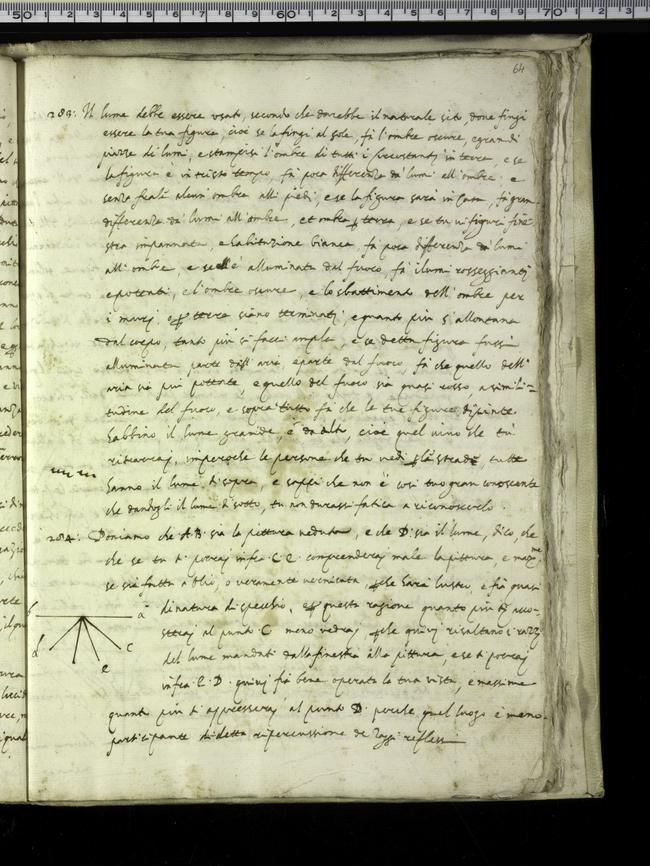 64
283. Il lume debbe essere usato, secondo che darebbe il naturale sito dove fingi
essere la tua figura, cioè se la fingi al sole, fà l'ombre oscure, e grandi
piazze di lumi, e stampisi l'ombre di tutti i circustanti in terra, e se
la figura è in tristo tempo, fà poca differenza da lumi all'ombre, e
senza farli alcun ombra alli piedi, e se la figura sarà in casa, fà gran
differenza da lumi all'ombre, et ombra p terra, e se tu vi figuri fine-
stra impannata, e habitatione bianca, fà poca differenza da lumi
all'ombre, e se ell'è alluminata dal fuoco, fà i lumi rosseggianti
e potenti, e l'ombre oscure, e lo sbattimento dell'ombre per
i muri, e p terra siano terminati, e quanto più s'allontana
dal corpo, tanto più si facci ampla, e se detta figura fussi
alluminata parte dall'aria, e parte dal fuoco, fà che quello dell'
aria sia più potente, e quello del fuoco sia quasi rosso, a simili-
tudine del fuoco, e sopra tutto fà che le tue figure dipinte
habbino il lume grande, e da alto, cioè quel vivo che tù
ritrarrai, imperoche le persone che tu vedi p le strade, tutte
hanno il lume di sopra, e sappi che non è così tuo gran conoscente
che dandogli il lume di sotto, tu non durassi fatica a riconoscerlo.
284. Poniamo che A B. sia la pittura veduta, e che D. sia il lume, dico, che
che se tu ti porrai infra C. E. comprenderai male la pittura, e max.me
se sia fatta a olio, o veramente verniciata, pche harà lustro, e fia quasi
di natura di specchio, e p questa ragione quanto più ti acco-
sterai al punto C meno vedrai, pche quivi risaltano i razzi
del lume mandati dalla finestra alla pittura, e se ti porrai
infra E. D. quivi fia bene operata la tua vista, e massime
quanto più ti appresserai al punto D. perche quel luogo è meno
participante di detta ripercussione de razzi reflessi
b a
d c
e